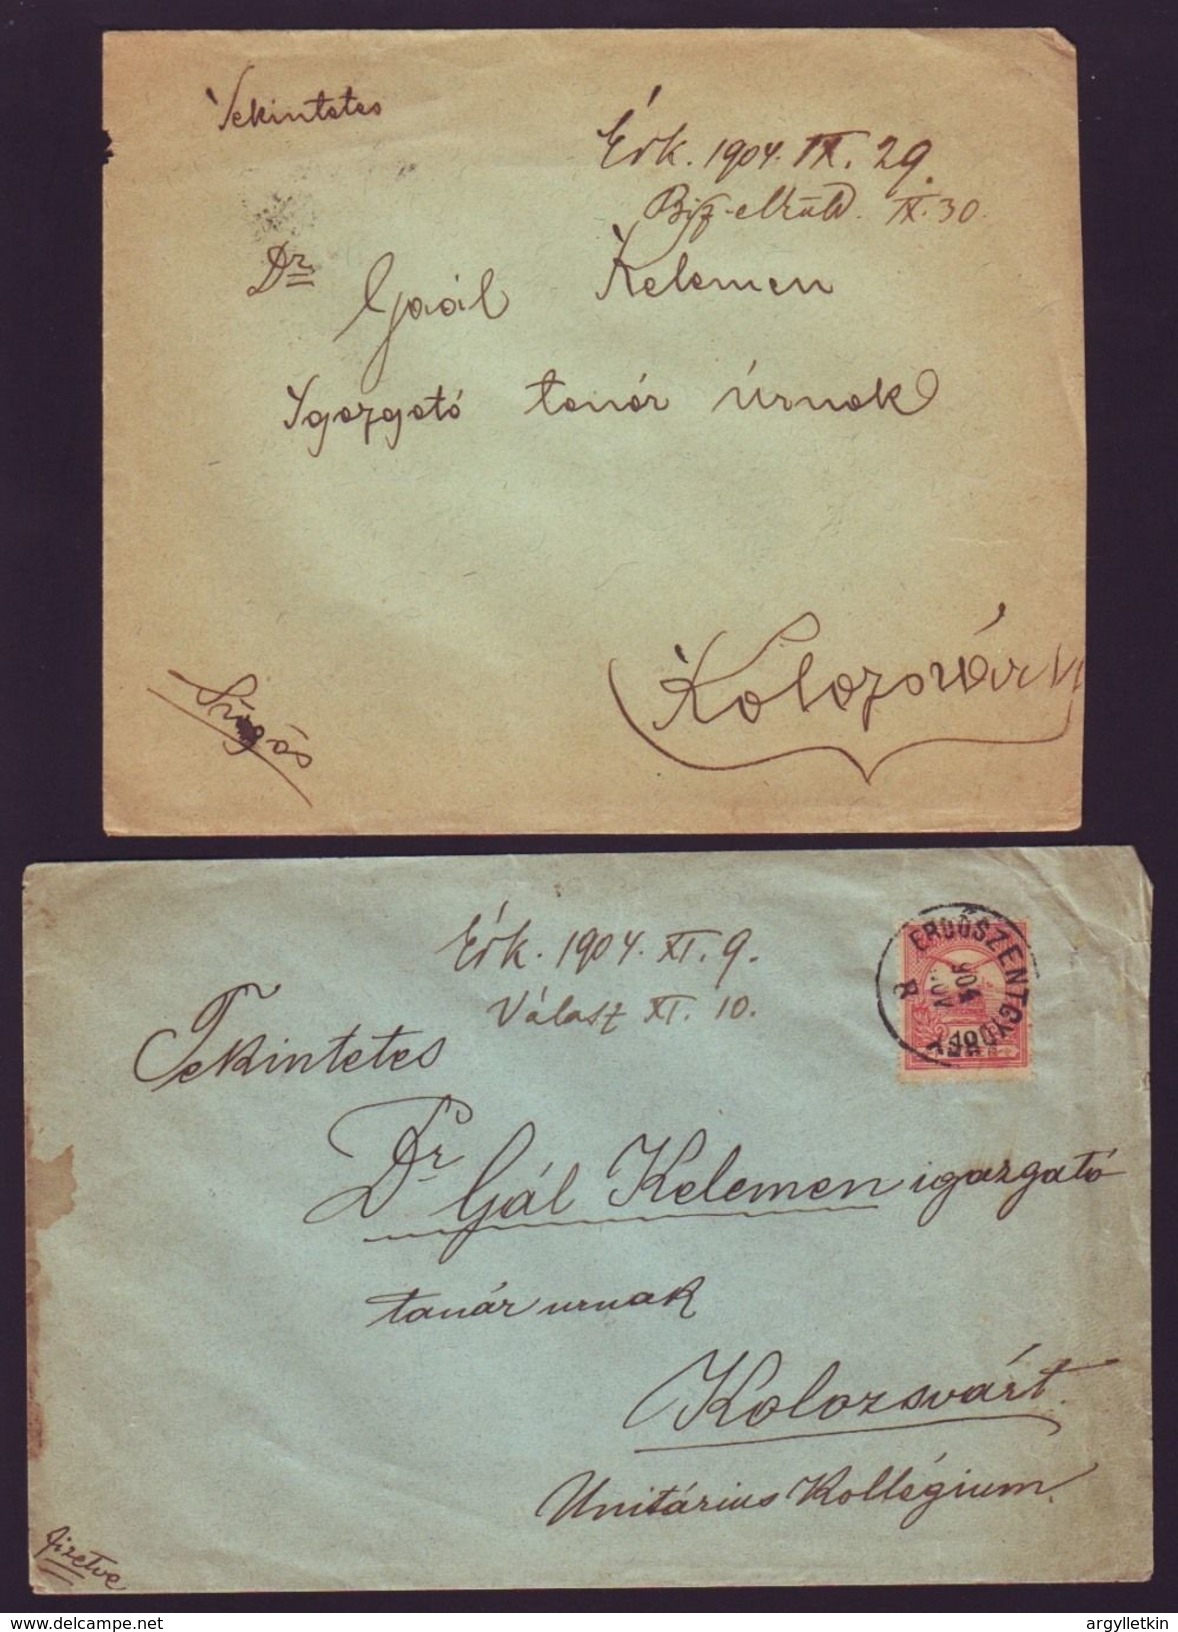 Tekintetes
Érk. 1904. IX. 29.
IX. 30.
Dr Gaál Kelemen
Igazgató tanár úrnak
Kolozsvár
Sürgős
Érk. 1904. XI. 9.
Válasz XI. 10.
ERDŐSZENTGYÖRGY
Tekintetes
Dr Gál Kelemen igazgató
tanár urnak
Kolozsvárt.
Unitárius Kollégium.
fizetve
delcampe.net
argylletkin